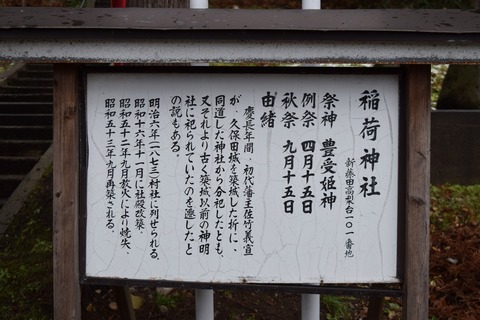 稲荷神社
新藤田高梨台一〇一番地
祭神 豊受姫神
例祭 四月十五日
秋祭 九月十五日
由緒
慶長年間、初代藩主佐竹義宣
が、久保田城を築城した折に、
同道した神社から分祀したとも、
又それより古く築城以前の神明
社に祀られていたのを遷したと
の説もある。
明治六年(一八七三)村社に列せられる。
昭和十六年十一月に社殿改築。
昭和五十二年九月放火により焼失、
昭和五十三年九月再築される。